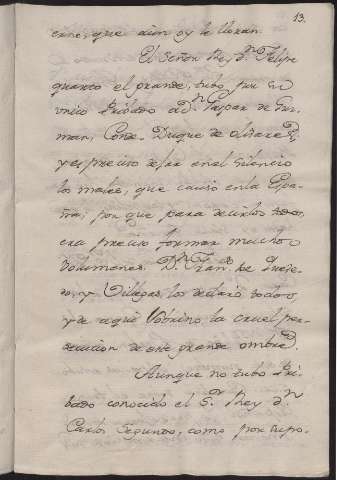 13.
erne, que aun oy le lloran.
El Señor Rey Dn. Felipe
quarto el grande, tubo por su
unico Pribado a Dn. Gaspar de Guz-
man, Conde-Duque de olibares,
y es preciso dejar en el silencio
los males, que causó en la Espa-
ña; por que para decirlos
era preciso formar muchos
bolumenes. Dn. Franco. de Queve-
do, y Villegas los declaró todos,
y de aqui Vobrino la cruel per-
secucion de este grande ombre.
Aunque no tubo Pri-
bado conocido el Sr. Rey Dn.
Carlos Segundo, como por supo-